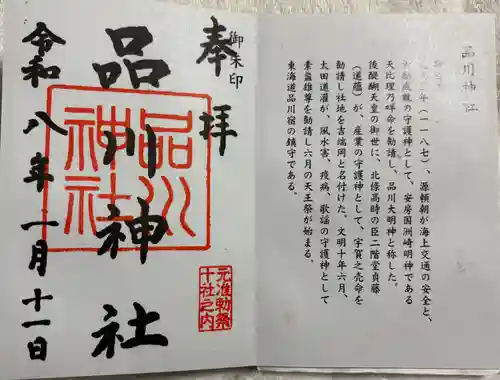 品川神社
年(一一八七)、源頼朝が海上交通の安全と、
の守護神として、安房国洲崎明神である
天比理乃咩命を勧請し、品川大明神と称した。
後醍醐天皇の御世に、北條高時の臣二階堂貞藤
(道蘊)が、産業の守護神として、宇賀之売命を
勧請し社地を吉端岡と名付けた。文明十年六月、
太田道灌が、風水害、疫病、歌謡の守護神として
素盞雄尊を勧請し六月の天王祭が始まる。
東海道品川宿の鎮守である。
御朱印
奉拝
品川神社
品川
神社
元准勅祭
十社之内
令和八年二月十一日